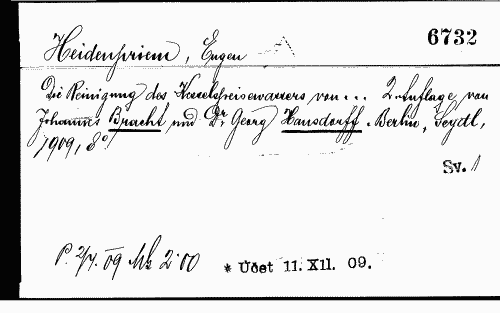 6732
Heidenpriem, Eugen
Die Reinigung des Kesselspeisewassers von ... 2. Auflage von
Johannes Bracht und Dr. Georg Hausdorff. Berlin, Seydel,
1909, 8°
Sv. 1
P. 2/4. 09 Mk 2·00
* Účet 11. XII. 09.